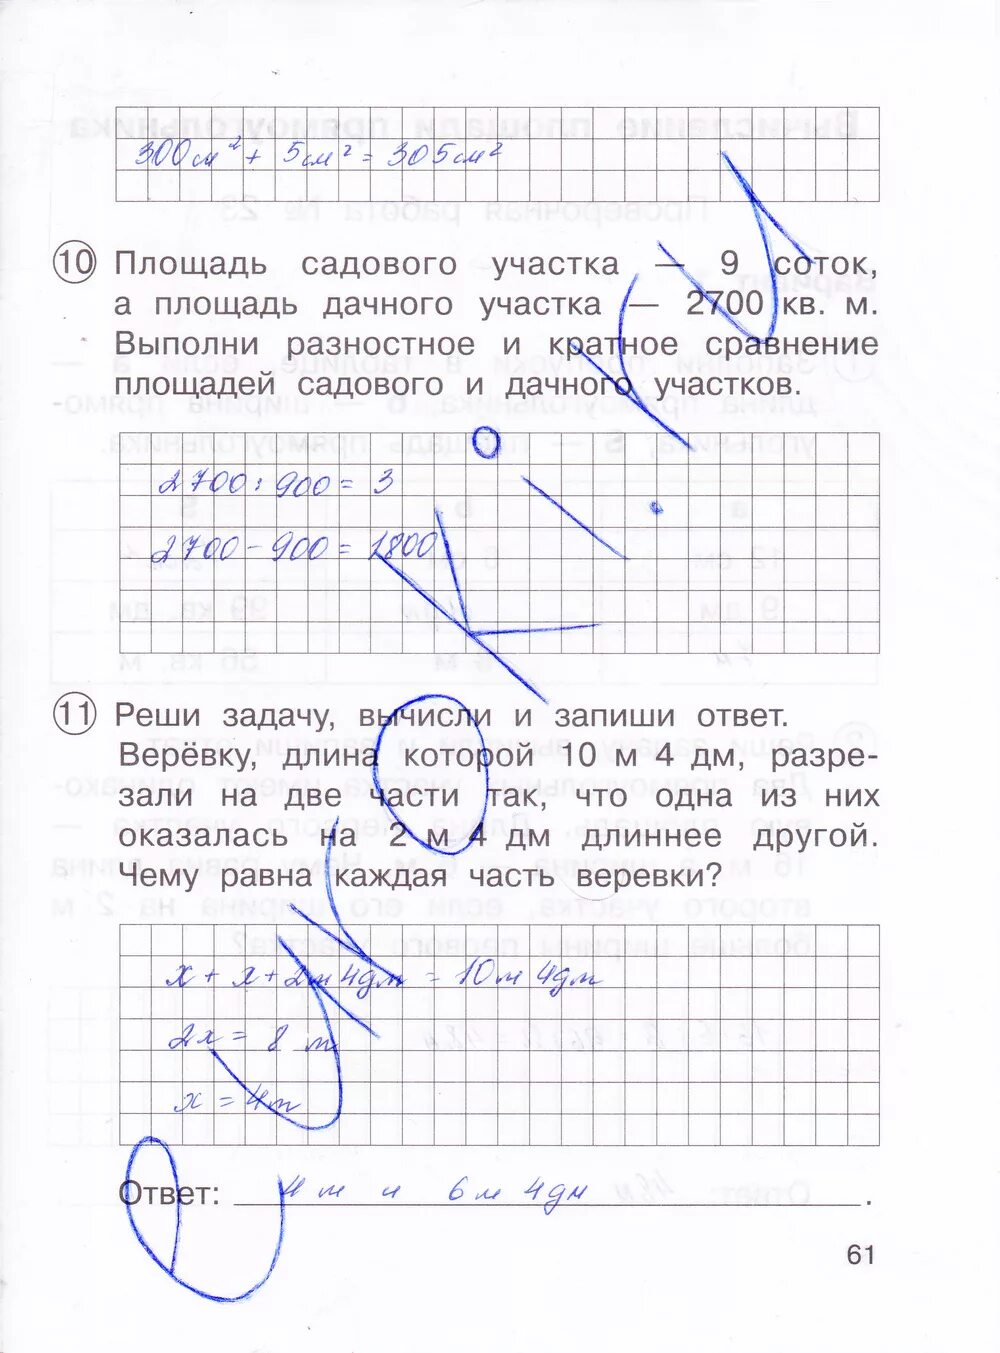 300см² + 5см² = 305см²
10 Площадь садового участка — 9 соток,
а площадь дачного участка — 2700 кв. м.
Выполни разностное и кратное сравнение
площадей садового и дачного участков.
2700 : 900 = 3
2700 - 900 = 1800
11 Реши задачу, вычисли и запиши ответ.
Верёвку, длина которой 10 м 4 дм, разре-
зали на две части так, что одна из них
оказалась на 2 м 4 дм длиннее другой.
Чему равна каждая часть веревки?
x + x + 2м 4дм = 10м 4дм
2x = 8 м
x = 4м
Ответ: 4 м и 6м 4дм.
61